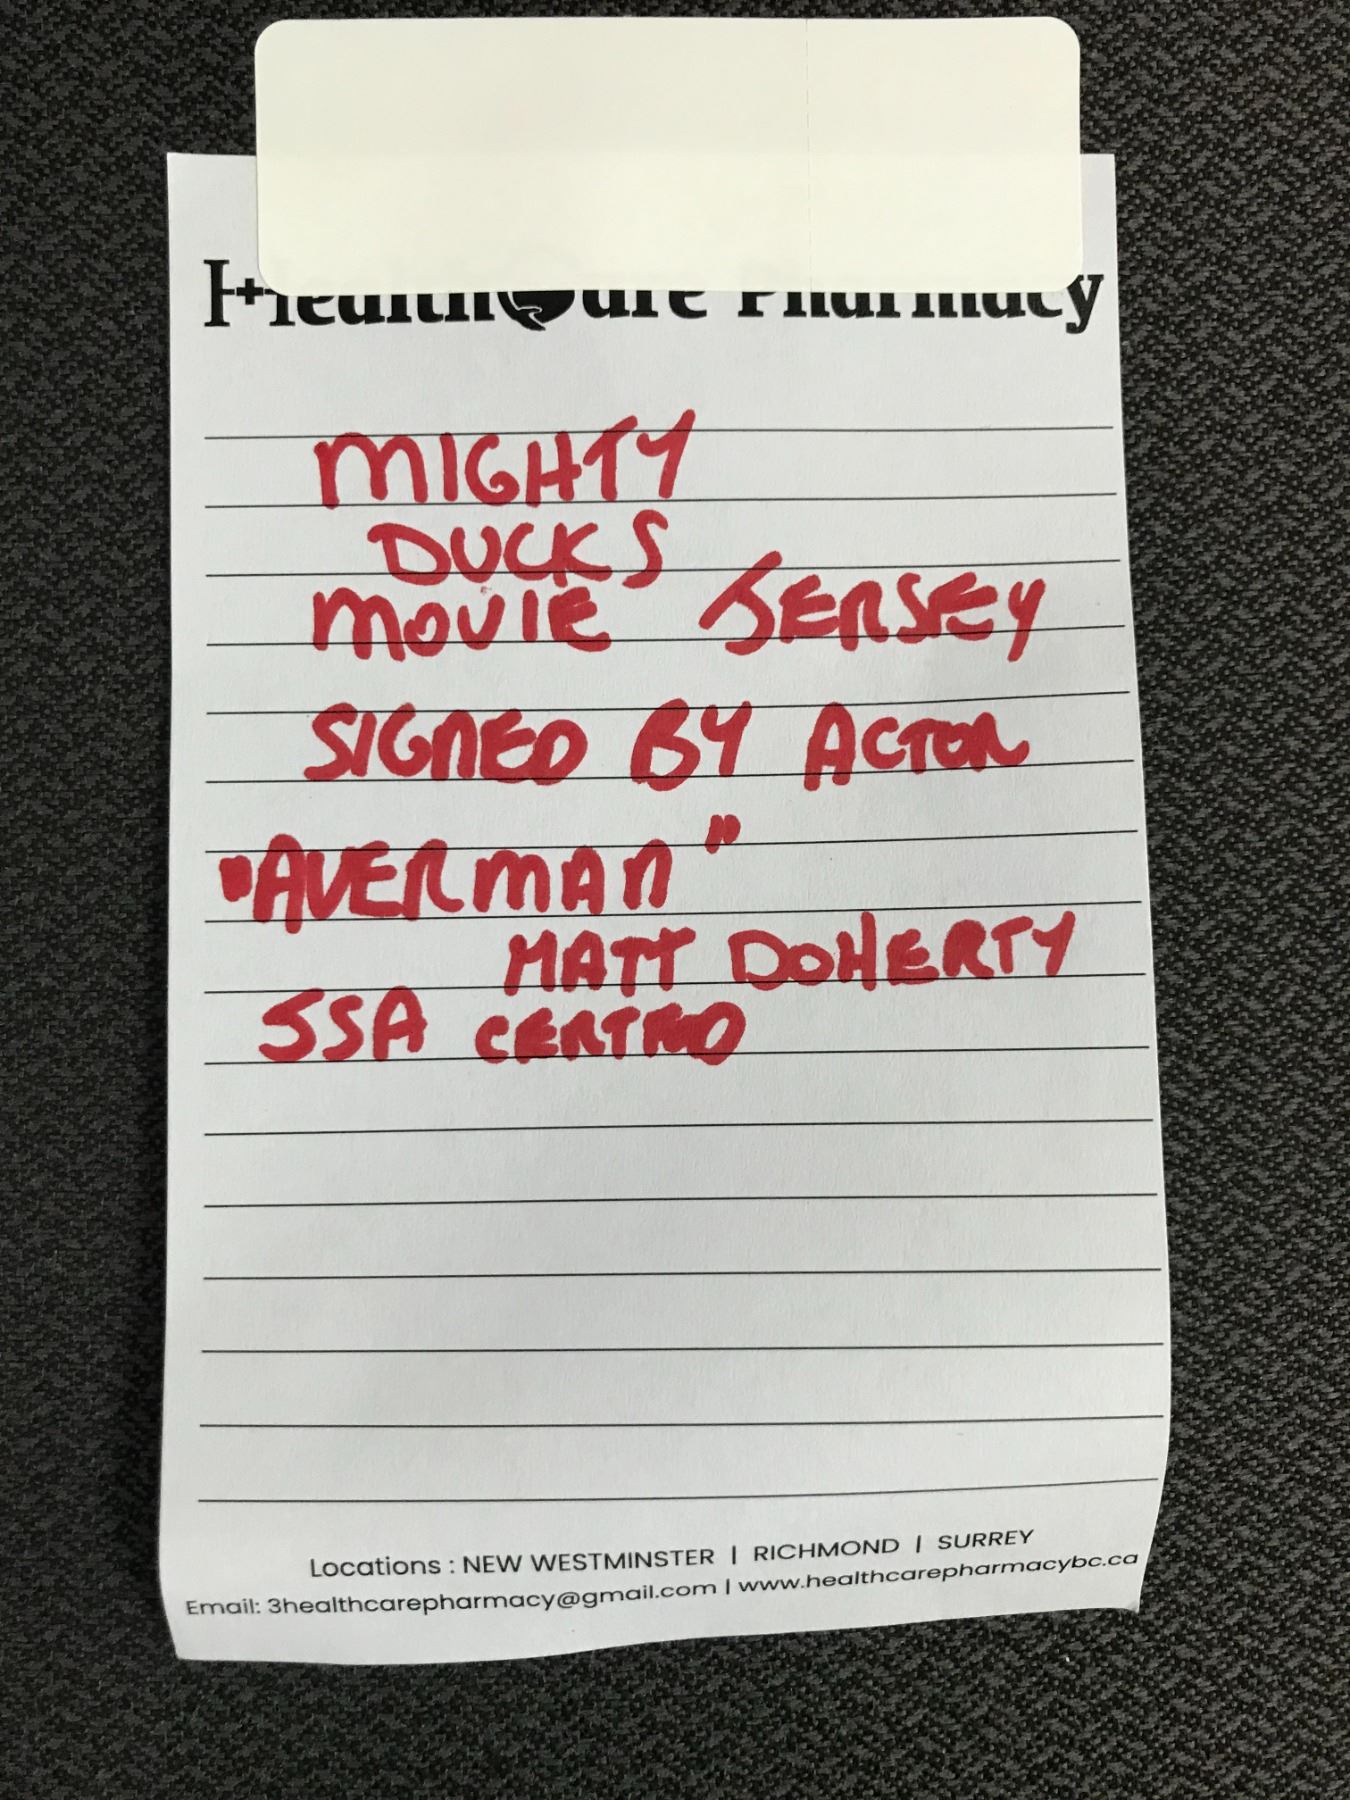 HealthCare Pharmacy
MIGHTY
DUCKS
MOVIE JERSEY
SIGNED BY ACTOR
"AVERMAN"
MATT DOHERTY
JSA
Locations : NEW WESTMINSTER | RICHMOND | SURREY
Email: 3healthcarepharmacy@gmail.com | www.healthcarepharmacybc.ca